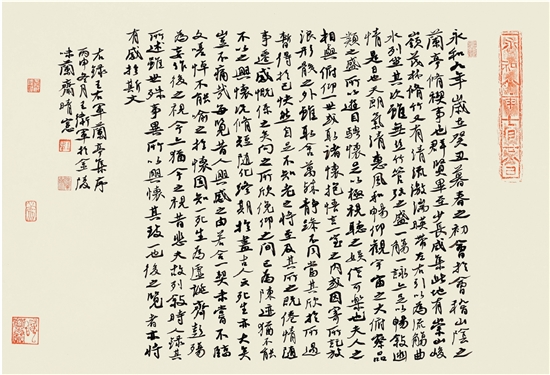 永和九年歲在癸丑暮春之初會於會稽山陰之
蘭亭脩禊事也群賢畢至少長咸集此地有崇山峻
嶺茂林脩竹又有清流激湍映帶左右引以為流觴曲
水列坐其次雖無絲竹管弦之盛一觴一詠亦足以暢敘幽
情是日也天朗氣清惠風和暢仰觀宇宙之大俯察品
類之盛所以遊目騁懷足以極視聽之娛信可樂也夫人之
相與俯仰一世或取諸懷抱悟言一室之內或因寄所託放
浪形骸之外雖趣舍萬殊靜躁不同當其欣於所遇
暫得於己快然自足不知老之將至及其所之既倦情隨
事遷感慨係之矣向之所欣俛仰之間已為陳迹猶不能
不以之興懷況脩短隨化終期於盡古人云死生亦大矣
豈不痛哉每覽昔人興感之由若合一契未嘗不臨
文嗟悼不能喻之於懷固知一死生為虛誕齊彭殤
為妄作後之視今亦猶今之視昔悲夫故列敘時人錄其
所述雖世殊事異所以興懷其致一也後之覽者亦將
有感於斯文
右錄王右軍蘭亭集序
丙申冬月王衛軍於金陵
味蘭齋晴窗